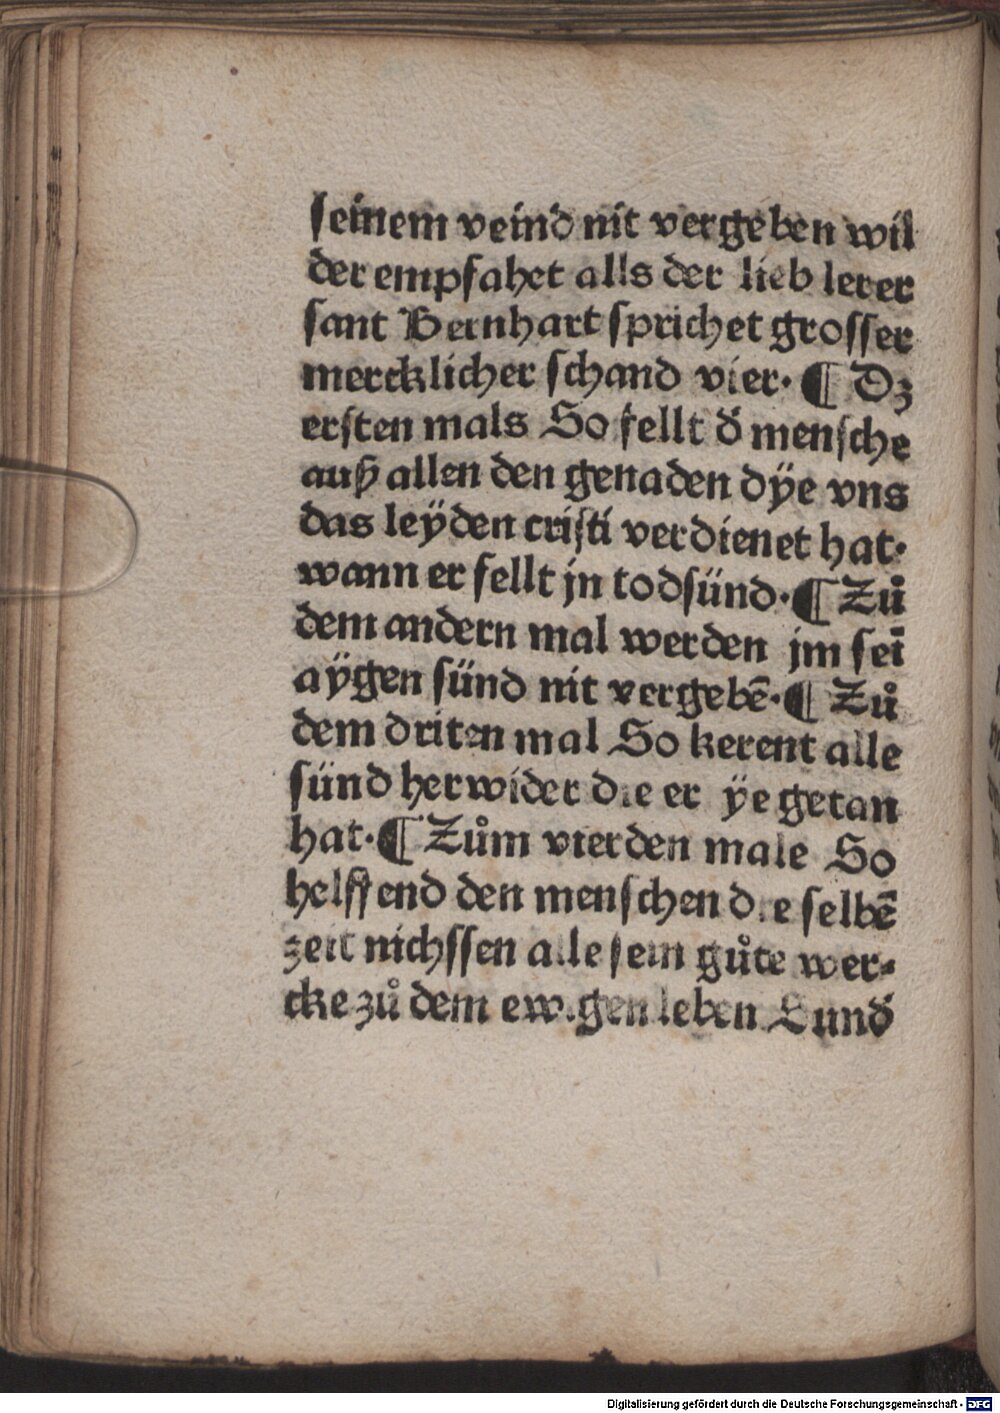 seinem veind nit vergeben wil
der empfahet alls der lieb lerer
sant Bernhart sprichet grosser
mercklicher schand vier· ¶ Dz
ersten mals So fellt d̕ mensche
auß allen den genaden dÿe vns
das leÿden cristi verdienet hat·
wann er fellt jn todsünd·¶ Zů
dem andern mal werden jm sei̅
aÿgen sünd nit vergebe̅·¶ Zů
dem driten mal So kerent alle
sünd herwider die er ÿe getan
hat·¶ Zům vierden male So
helffend den menschen die selbe̅
zeit nichssen alle sein gůte wer⸗
cke zů dem ewigen leben Sund̕
Digitalisierung gefördert durch die Deutsche Forschungsgemeinschaft - DFG